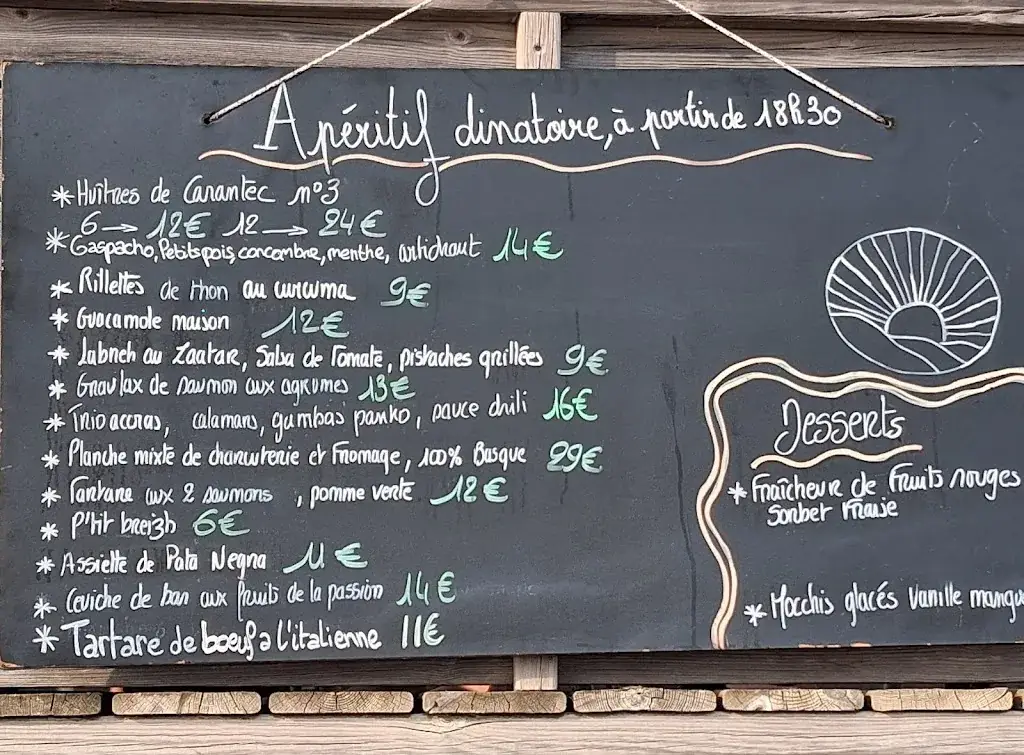 Apéritif dinatoire, à partir de 18h30
* Huîtres de Carantec n°3
6 → 12€ 12 → 24€
* Gaspacho, Petits pois, concombre, menthe, artichaut 14€
* Rillettes de thon au curcuma 9€
* Guacamole maison 12€
* Labneh au Zaatar, Salsa de Tomate, pistaches grillées 9€
* Gravlax de saumon aux agrumes 13€
* Trio accras, calamars, gambas panko, sauce chili 16€
* Planche mixte de charcuterie et Fromage, 100% Basque 29€
* Tartare aux 2 saumons, pomme verte 12€
* P'tit breizh 6€
* Assiette de Pata Negra 11€
* Ceviche de bar aux fruits de la passion 14€
* Tartare de boeuf a l'italienne 11€
Desserts
* Fraîcheur de Fruits rouges
Sorbet Fraise
* Mocchis glacés Vanille mangu